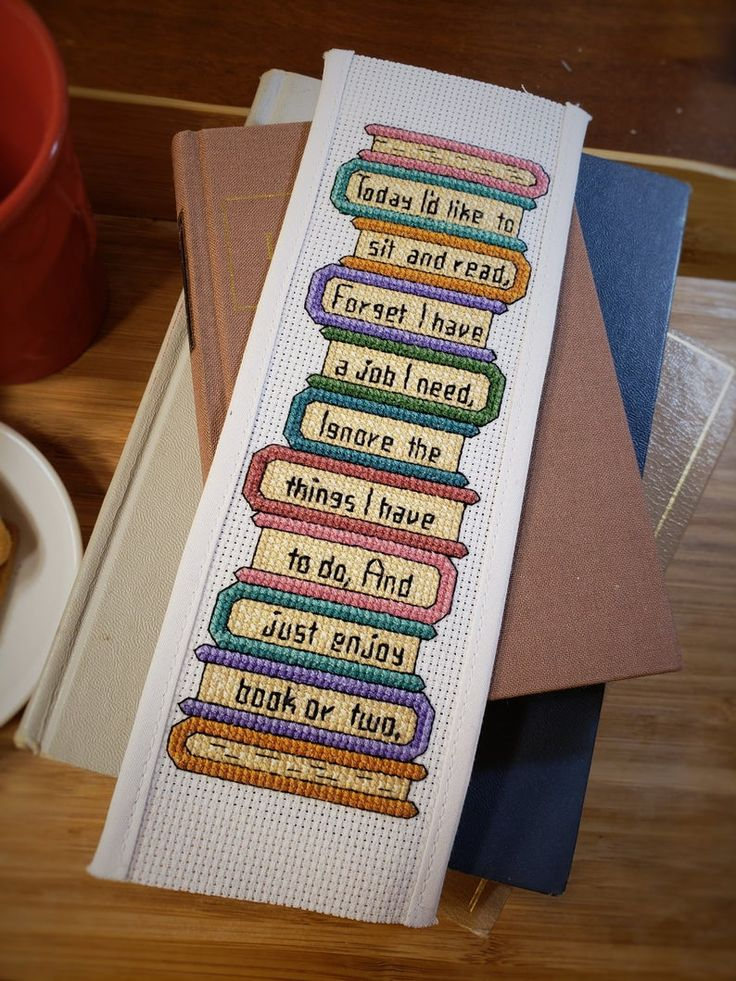 Today I'd like to
sit and read,
Forget I have
a job I need,
Ignore the
things I have
to do, And
just enjoy
book or two.